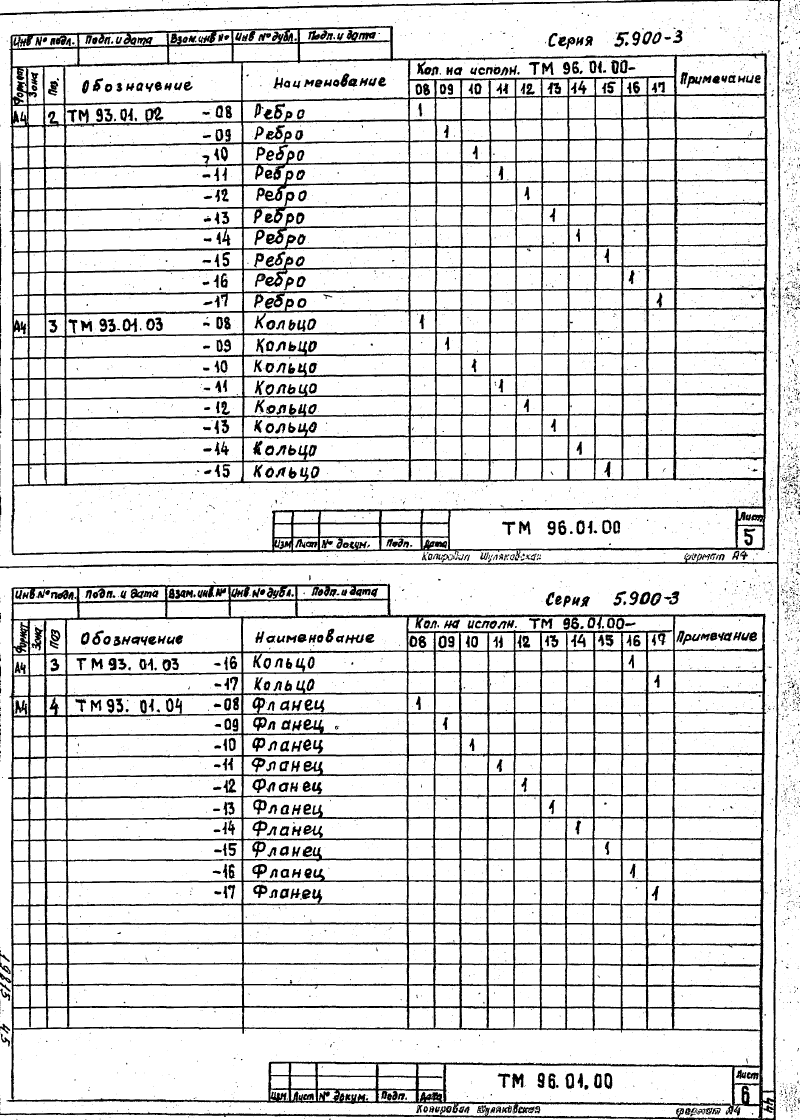 Инв № подл. Подп. и дата Взам. инв № Инв № дубл. Подп. и дата
Серия 5.900-3
Формат Зона Поз. Обозначение Наименование Кол. на исполн. ТМ 96.01.00- Примечание
08 09 10 11 12 13 14 15 16 17
А4 2 ТМ 93.01.02 -08 Ребро 1
-09 Ребро 1
-10 Ребро 1
-11 Ребро 1
-12 Ребро 1
-13 Ребро 1
-14 Ребро 1
-15 Ребро 1
-16 Ребро 1
-17 Ребро 1
А4 3 ТМ 93.01.03 -08 Кольцо 1
-09 Кольцо 1
-10 Кольцо 1
-11 Кольцо 1
-12 Кольцо 1
-13 Кольцо 1
-14 Кольцо 1
-15 Кольцо 1
ТМ 96.01.00
Лист
5
Изм Лист № докум. Подп. Дата
Копировал Шуляковская формат А4
Инв. № подл. Подп. и дата Взам. инв. № Инв. № дубл. Подп. и дата
Серия 5.900-3
Формат Зона Поз Обозначение Наименование Кол. на исполн. ТМ 96.01.00- Примечание
08 09 10 11 12 13 14 15 16 17
А4 3 ТМ 93.01.03 -16 Кольцо 1
-17 Кольцо 1
А4 4 ТМ 93.01.04 -08 Фланец 1
-09 Фланец 1
-10 Фланец 1
-11 Фланец 1
-12 Фланец 1
-13 Фланец 1
-14 Фланец 1
-15 Фланец 1
-16 Фланец 1
-17 Фланец 1
ТМ 96.01.00
Лист
6
Изм Лист № докум. Подп. Дата
Копировал Шуляковская формат А4
45